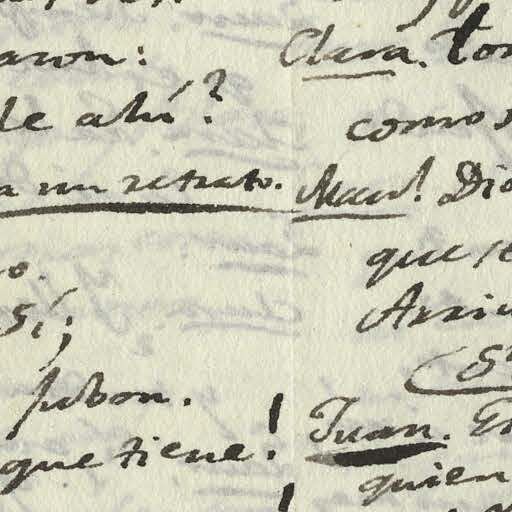 aron:
de ahí?
a un retrato.
o.
Sí;
jubon.
que tiene!
Clara. Ton
como s
Man! Dio
que se
Arriv
(S
Juan. En
quien